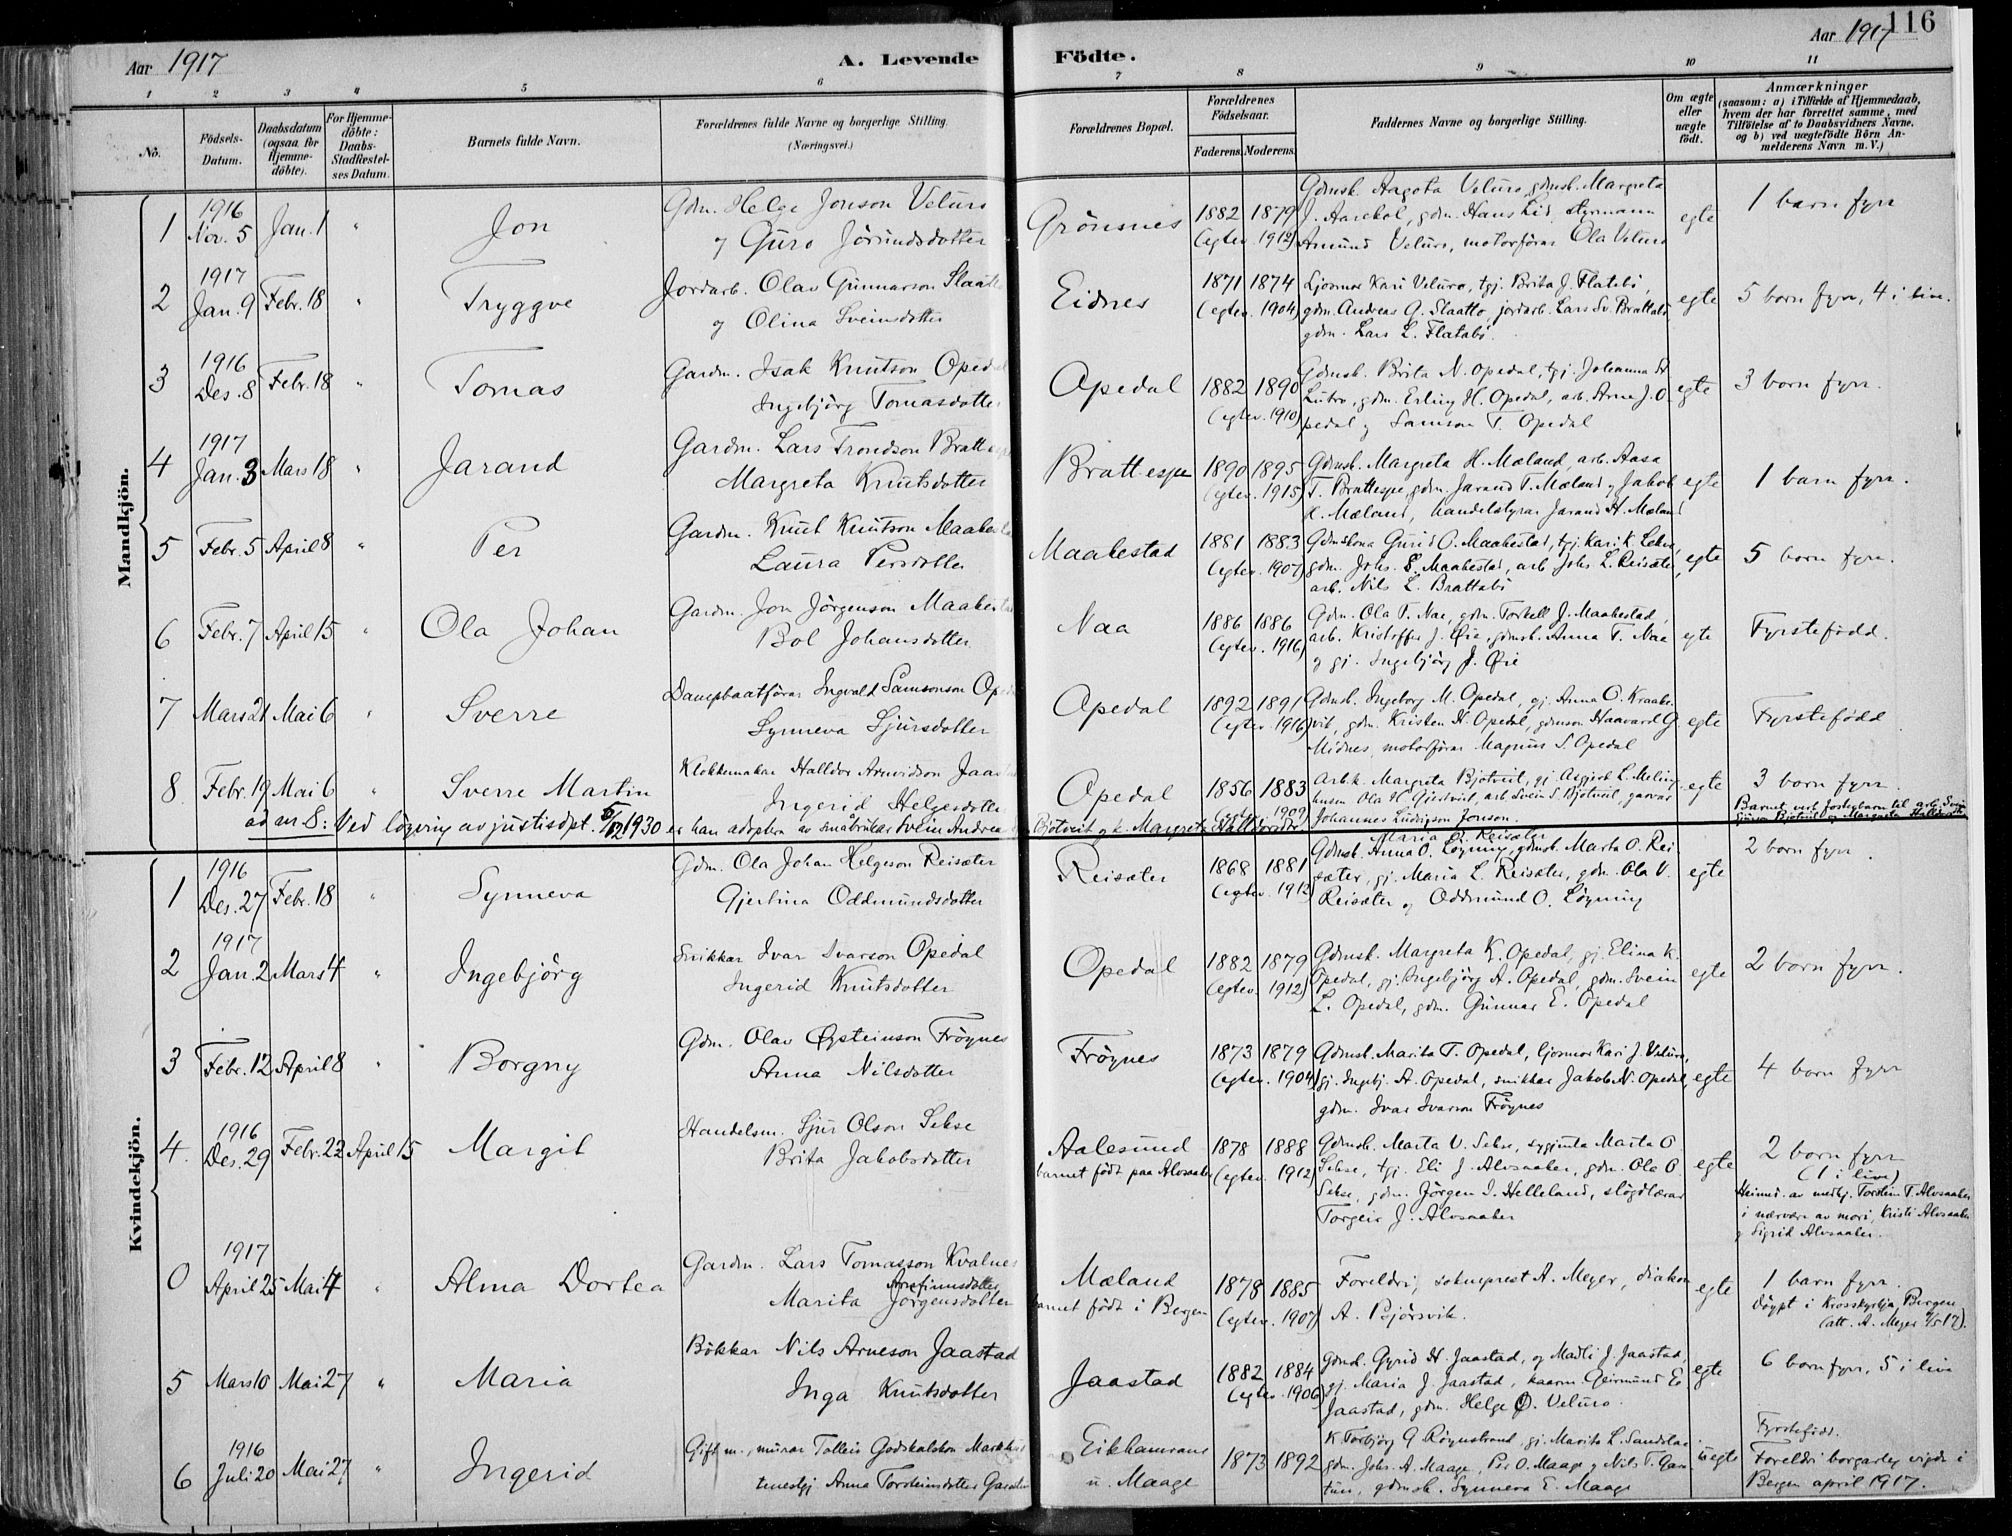 116
Aar 1917
A. Levende Födte.
Aar 1917
1 2 3 4 5 6 7 8 9 10 11
No.
Födsels-Datum.
Daabsdatum (ogsaa for Hjemme-döbte).
For Hjemme-döbte: Daabs-Stadfæstelses Datum.
Barnets fulde Navn.
Forældrenes fulde Navne og borgerlige Stilling. (Næringsvei.)
Forældrenes Bopæl.
Forældrenes Födselsaar.
Faderens. Moderens.
Faddernes Navne og borgerlige Stilling.
Om ægte eller uægte födt.
Anmærkninger
(saasom: a) i Tilfælde af Hjemmedaab, hvem der har forrettet samme, med Tilföielse af to Daabsvidners Navne, og b) ved uægtefödte Börn Anmelderens Navn m. V.)
Mandkjön.
1 1916 Nov. 5 Jan. 1 " Jon
Gdm. Helge Jonson Velure
og Guro Jörundsdotter
Grönsnes 1882 1879 (egtev. 1912)
Gdmsk. Aagota Velure, gdmsk. Margreta
J. Aarekol, gdm. Hans Lid, styrmann
Amund Velure, motorförar Ola Velure
egte 1 barn fyrr
2 1917 Jan. 9 Febr. 18 " Tryggve
Jordarb. Olav Gunnarson Slaatte
og Olina Sveinsdotter
Eidnes 1871 1874 (egtev. 1904)
Ljosmor Kari Velure, tgj. Brita J. Flatebö,
gdm. Andreas G. Slaatto, jordarb. Lars Sv. Brattabö
gdm. Lars L. Flatabö.
egte 5 born fyrr, 4 i live.
3 1916 Des. 8 Febr. 18 " Tomas
Gardm. Isak Knutson Opedal
Ingebjörg Tomasdotter
Opedal 1882 1890 (egtev. 1910)
Gdmsk. Brita N. Opedal, tgj. Johanna
Lutro, gdm. Erling H. Opedal, arb. Arne J. O-
pedal og Samson T. Opedal
egte 3 born fyrr.
4 1917 Jan. 3 Mars 18 " Jarand
Gardm. Lars Trondson Brattespe
Margreta Knutsdotter
Brattespe 1890 1895 (egtev. 1915)
Gdmsk. Margreta H. Mæland, arb. Aasa
T. Brattespe, gdm. Jarand T. Mæland og Jakob
K. Mæland, handelstyrar Jarand H. Mæland
egte 1 barn fyrr.
5 Febr. 5 April 8 " Per
Gardm. Knut Knutson Maakestad
Laura Persdotter
Maakestad 1881 1883 (egtev. 1907)
Gdmskona Gurid O. Maakestad, tgj. Kari K. Lekve,
gdm. Johs. S. Maakestad, arb. Johs L. Reisæter,
arb. Nils L. Brattabö
egte 5 born fyrr.
6 Febr. 7 April 15 " Ola Johan
Gardm. Jon Jörgenson Maakestad
Bol Johansdotter
Naa 1886 1886 (egtev. 1916)
Gdm. Ola T. Naa, gdm. Torkell J. Maakestad,
arb. Kristoffer J. Øie, gdmsk. Anna T. Naa
og gj. Ingebjörg J. Øie
egte Fyrstefödd.
7 Mars 21 Mai 6 " Sverre
Dampbaatförar Ingvald Samsonson Opedal
Synneva Sjursdotter
Opedal 1892 1891 (egtev. 1916)
Gdmsk. Ingeborg M. Opedal, gj. Anna O. Kraake-
vik, gdm. Kristen H. Opedal, gdmson Haavard G.
Midnes, motorförar Magnus S. Opedal
egte Fyrstefödd
8 Febr. 19 Mai 6 " Sverre Martin
Klokkemakar Halldor Arnvidson Jaastad
Ingerid Helgesdotter
Opedal 1856 1883 (egtev. 1907)
Arb.k. Margreta Bjotveit, gj. Asgjerd L. Meling,
husm. Ola H. Gjertveit, arb. Svein S. Bjotveit, garvar
Johannes Ludvigson Jonson.
egte 3 born fyrr.
Barnet vert fosterbarn til arb. Svein
Bjotveit og Margreta Halldorsdtr.
ad nr 8: Ved løyving av justisdpt. 5/12 1930 er han adoptera av småbrukar Svein Andreas Bjotveit og k. Margreta Halldorsdtr.
Kvindekjön.
1 1916 Des. 27 Febr. 18 " Synneva
Gdm. Ola Johan Helgeson Reisæter
Gjertina Oddmundsdotter
Reisæter 1868 1881 (egtev. 1912)
Maria O. Reisæter
Gdmsk. Anna O. Løyning, gdmsk. Marta O. Rei-
sæter, gj. Maria L. Reisæter, gdm. Ola V.
Reisæter og Oddmund O. Løyning
egte 2 born fyrr.
2 1917 Jan. 2 Mars 4 " Ingebjörg
Snikkar Ivar Ivarson Opedal
Ingerid Knutsdotter
Opedal 1882 1879 (egtev. 1912)
Gdmsk. Margreta K. Opedal, gj. Elina K.
Opedal, gj. Ingebjörg A. Opedal, gdm. Svein
L. Opedal, gdm. Gunnar E. Opedal
egte 2 born fyrr.
3 Febr. 12 April 8 " Borgny
Gdm. Olav Øysteinson Fröynes
Anna Nilsdotter
Fröynes 1873 1879 (egtev. 1904)
Gdmsk. Marita T. Opedal, ljosmor Kari J. Velure,
gj. Ingebj. A. Opedal, snikkar Jakob N. Opedal,
gdm. Ivar Ivarson Fröynes
egte 4 born fyrr
4. 1916 Des. 29 Febr. 22 April 15 Margit
Handelsm. Sjur Olson Sekse
Brita Jakobsdotter
Aalesund
barnet född paa Alvsaaker
1878 1888 (egtev. 1912)
Gdmsk. Marta V. Sekse, sygjenta Marta O.
Sekse, tgj. Eli J. Alvsaaker, gdm. Ola O.
Sekse, gdm. Jörgen I. Helleland, slöydlærar
Torgeir J. Alvsaaker
egte 2 born fyrr
(1 i live)
Heimd. av medhj. Torstein T. Alvsaaker
i nærvære av mori, Kristi Alvsaaker
og Sigrid Alvsaaker.
0 1917 April 25 Mai 4 " Alma Dortea
Gardm. Lars Tomasson Kvalnes
Arnefinnsdotter
Marita Jörgensdotter
Mæland
barnet född i Bergen
1878 1885 (egtev. 1907)
Foreldri, sokneprest A. Meyer, diakon
A. Bjørsvik.
egte 1 barn fyrr.
döypt i Krosskyrkja, Bergen
(att. A. Meyer 4/5 17).
5 Mars 10 Mai 27 " Maria
Bökkar Nils Arneson Jaastad
Inga Knutsdotter
Jaastad 1882 1884 (egtev. 1906)
Gdmsk. Gyrid H. Jaastad, og Madli J. Jaastad,
gj. Maria J. Jaastad, kaarm. Geirmund E.
Jaastad, gdm. Helge Ø. Velure.
egte 6 born fyrr, 5 i live
6 1916 Juli 20 Mai 27 " Ingerid
Gift m., murar Tolleiv Godskalkson Markhus
tenestgj. Anna Torsteinsdotter
Eikhamrane
u. Maage
1873 1892
K. Torbjörg G. Röynstrand, gj. Marita L. Sandstø
gdm. Johs. A. Maage, Per O. Maage og Nils T. Gar-
tun, gdmsk. Synneva E. Maage
uegte Fyrstefödt.
Foreldri borgarleg vigde i
Bergen april 1917.